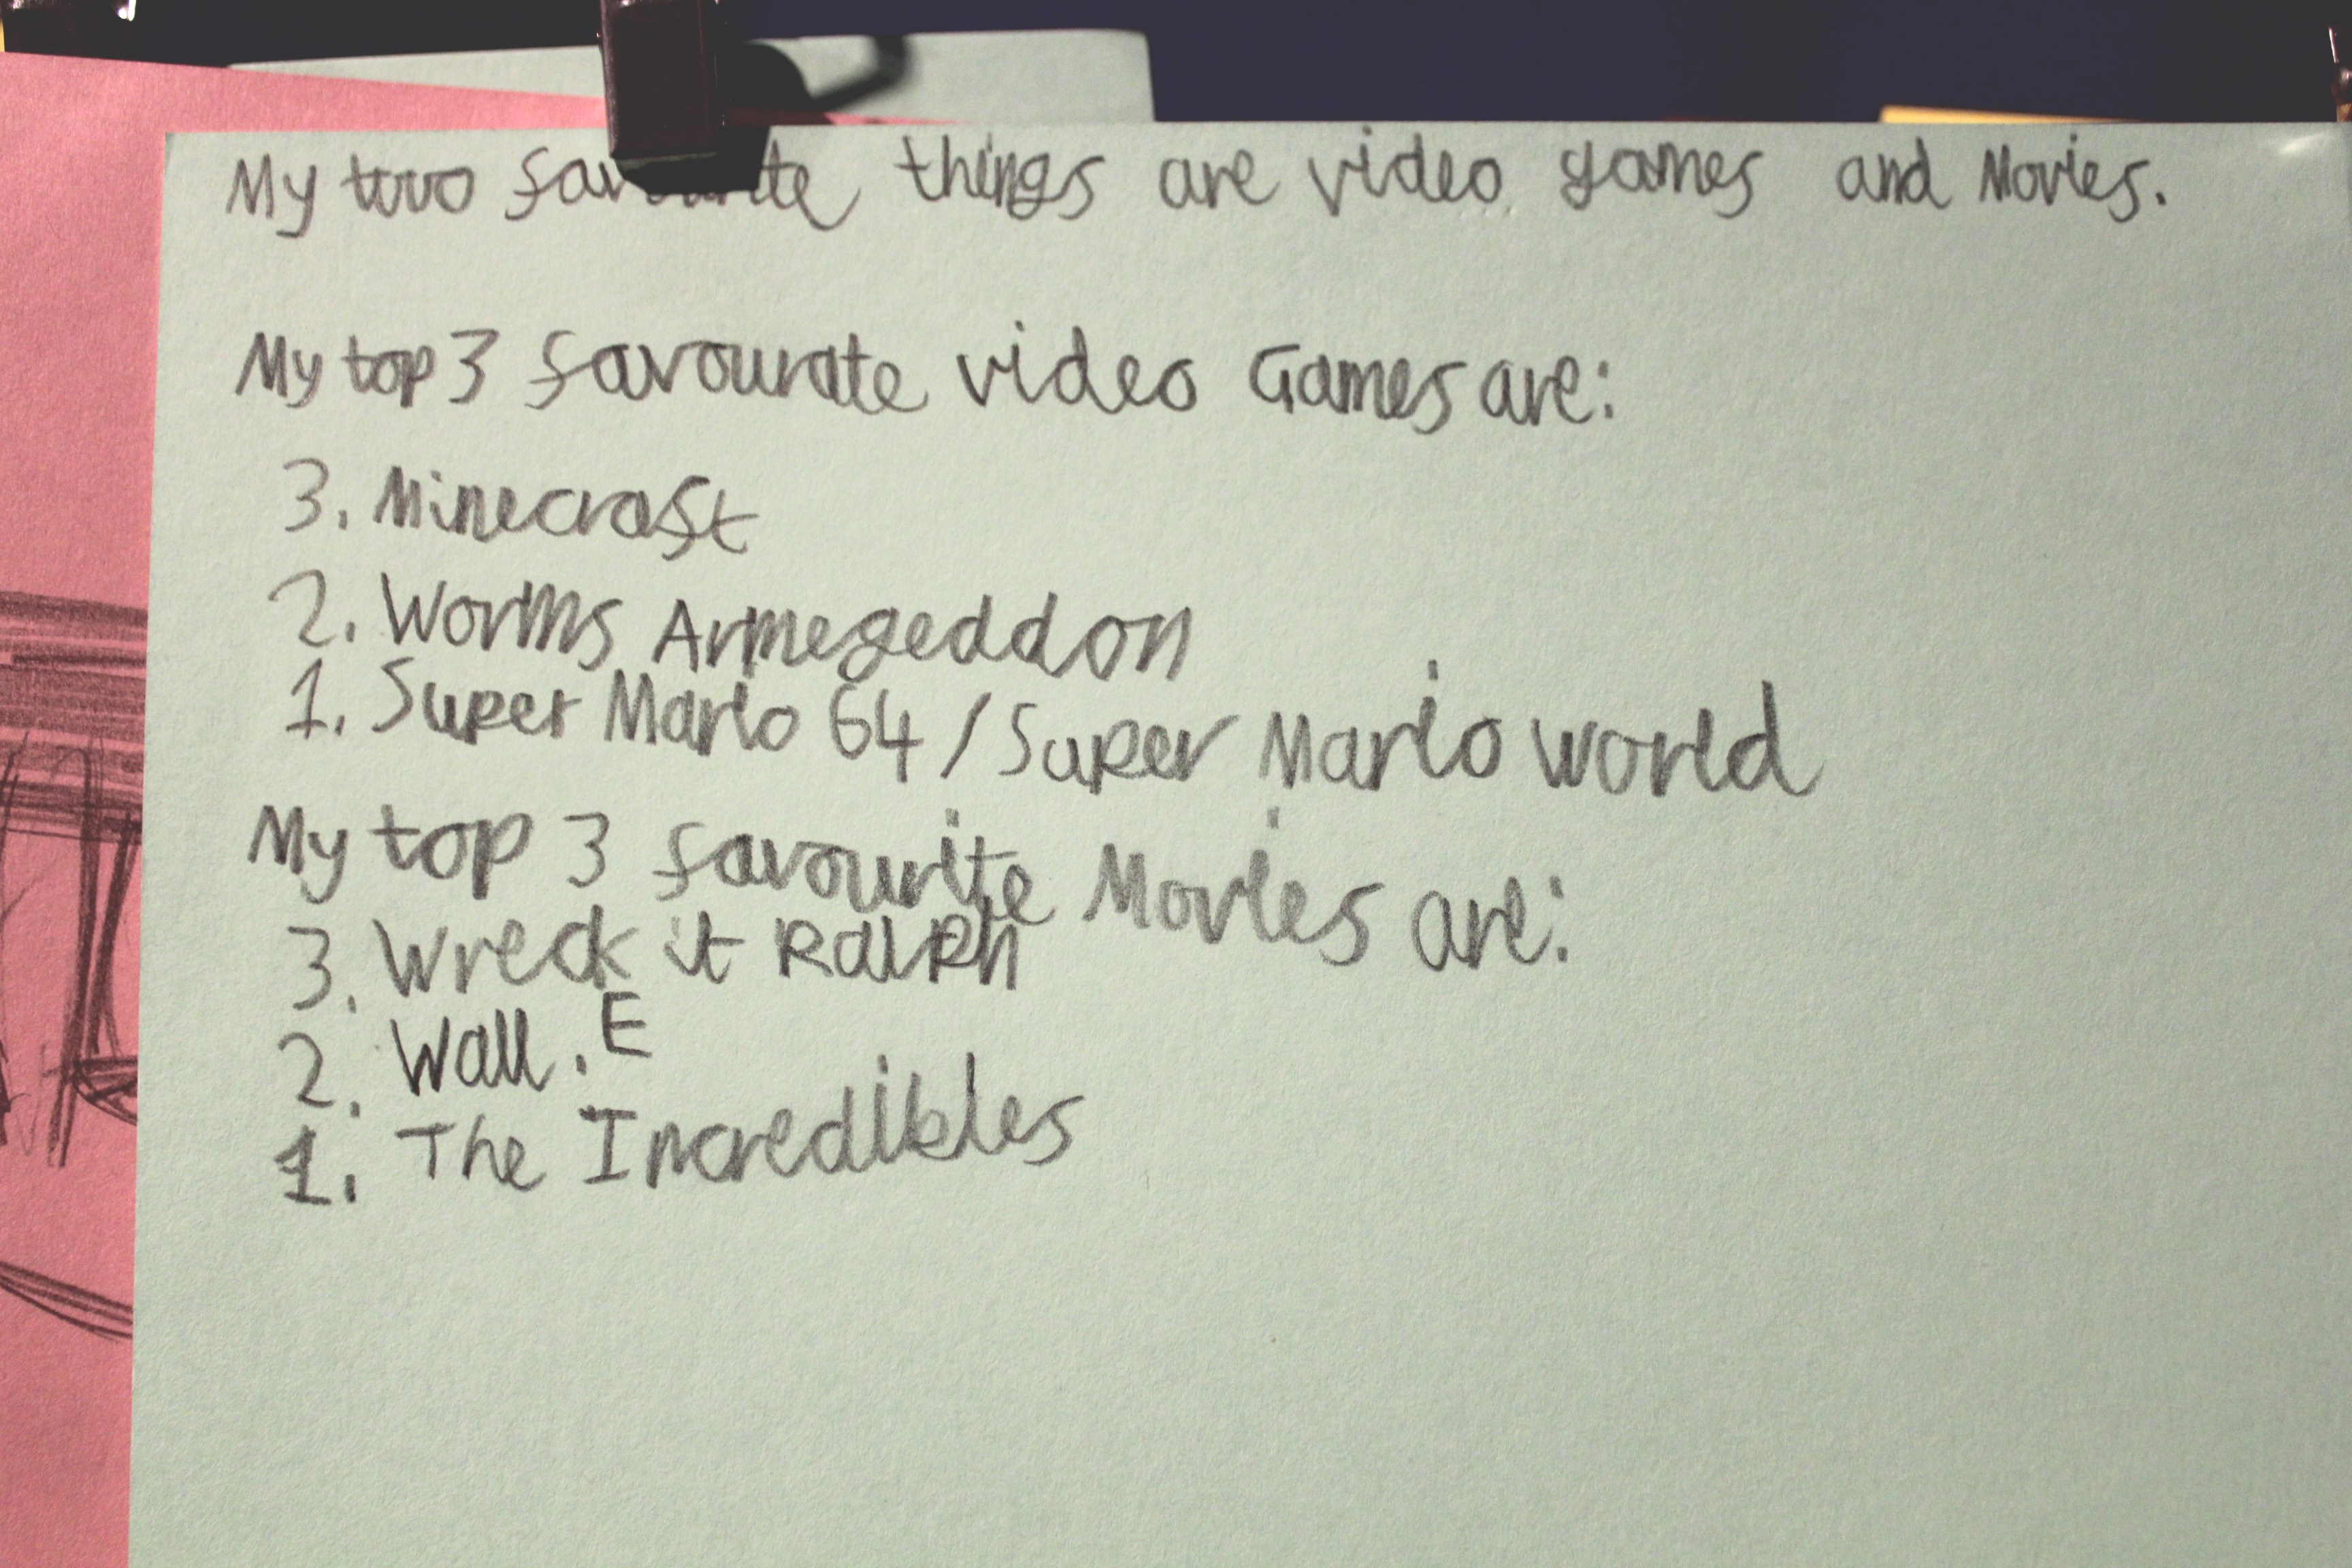 My two favourite things are video games and Movies.
My top 3 favourate video Games are:
3. Minecraft
2. Worms Armegeddon
1. Super Mario 64 / Super Mario World
My top 3 favourite Movies are:
3. Wreck it Ralph
2. Wall.E
1. The Incredibles